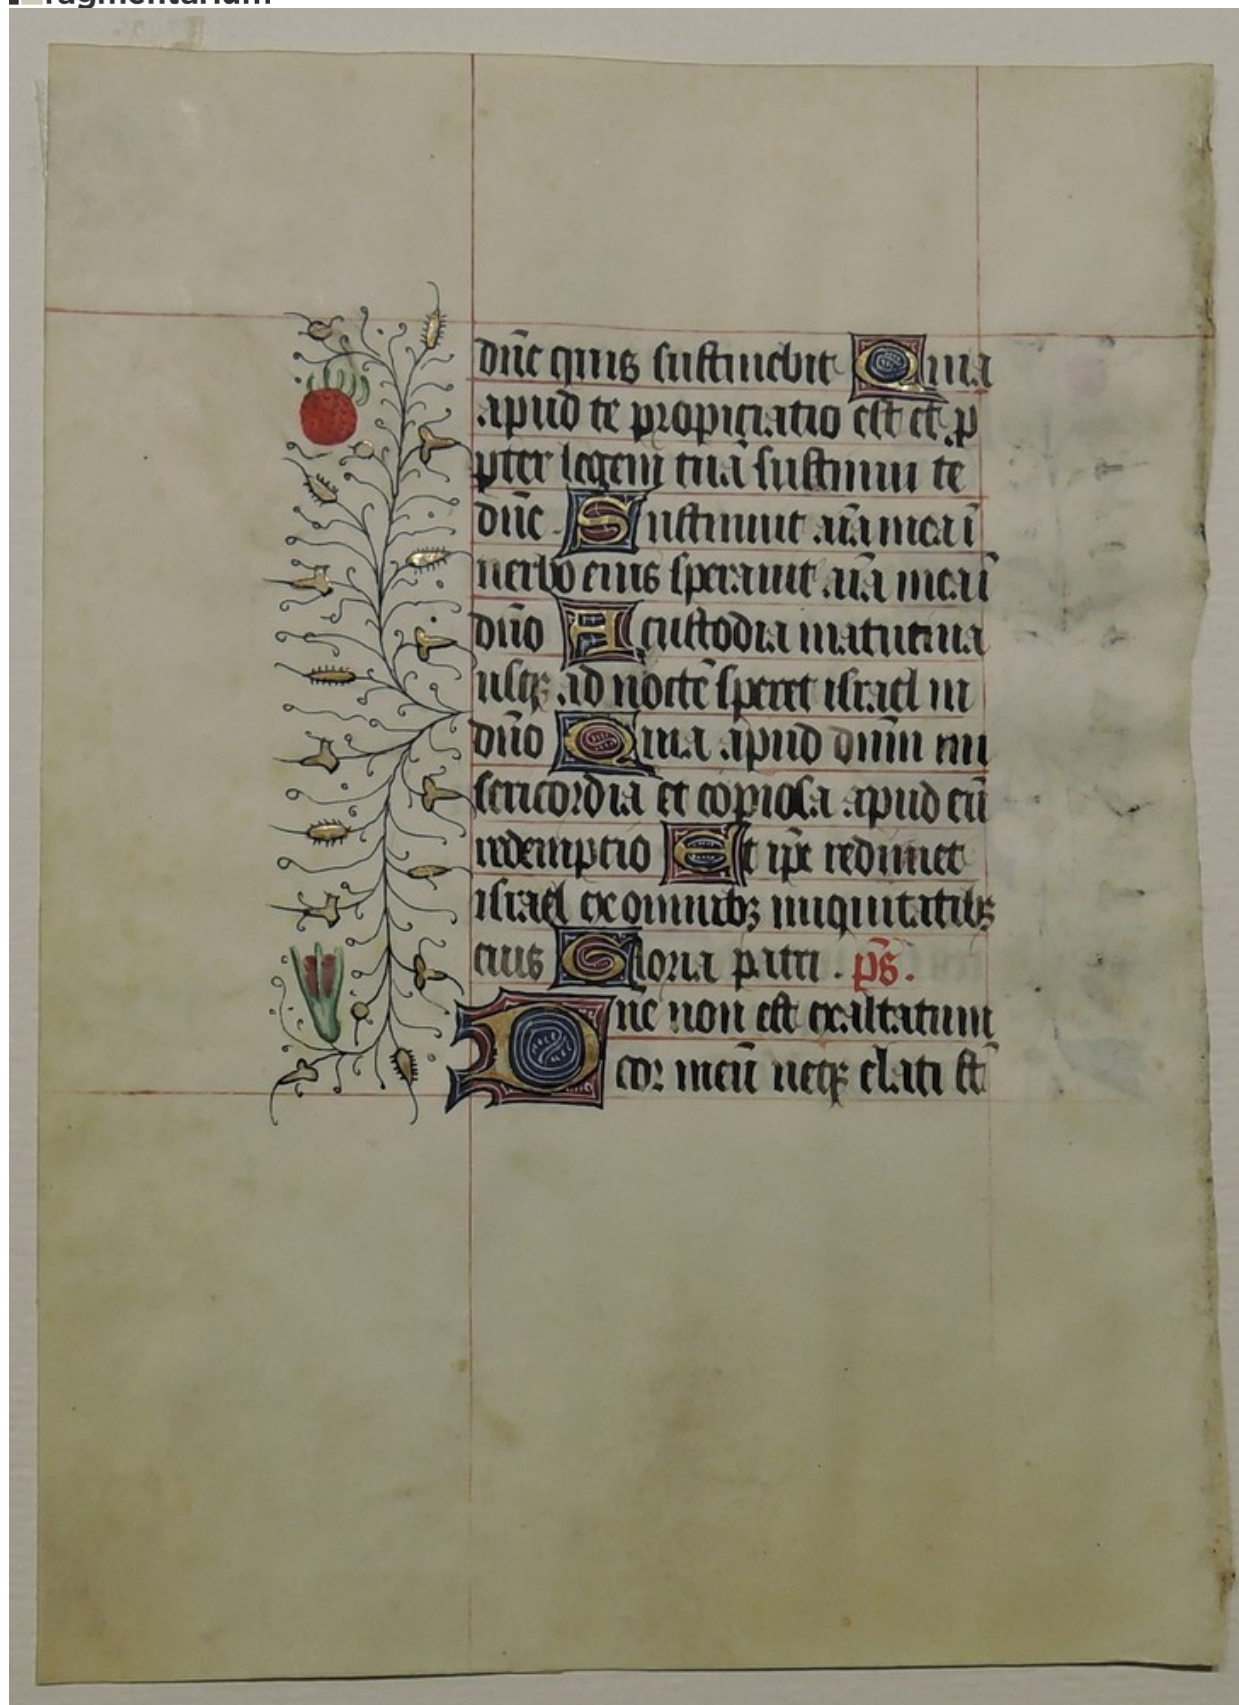 ragmentarium
dn̄e quis sustinebit Quia
apud te propiciatio est et p
pter legem tuā sustinui te
dn̄e. Sustinuit aīa mea ī
uerbo eius sperauit aīa mea ī
dn̄o A custodia matutina
usqꝫ ad noctē speret israel in
dn̄o Quia apud dnm̄ mi
sericordia et copiosa apud eū
redemptio Et ip̄e redimet
israel ex omnibꝫ iniquitatibꝫ
eius Gloria patri. p̄s.
Dn̄e non est exaltatum
cor meū neqꝫ elati st̄